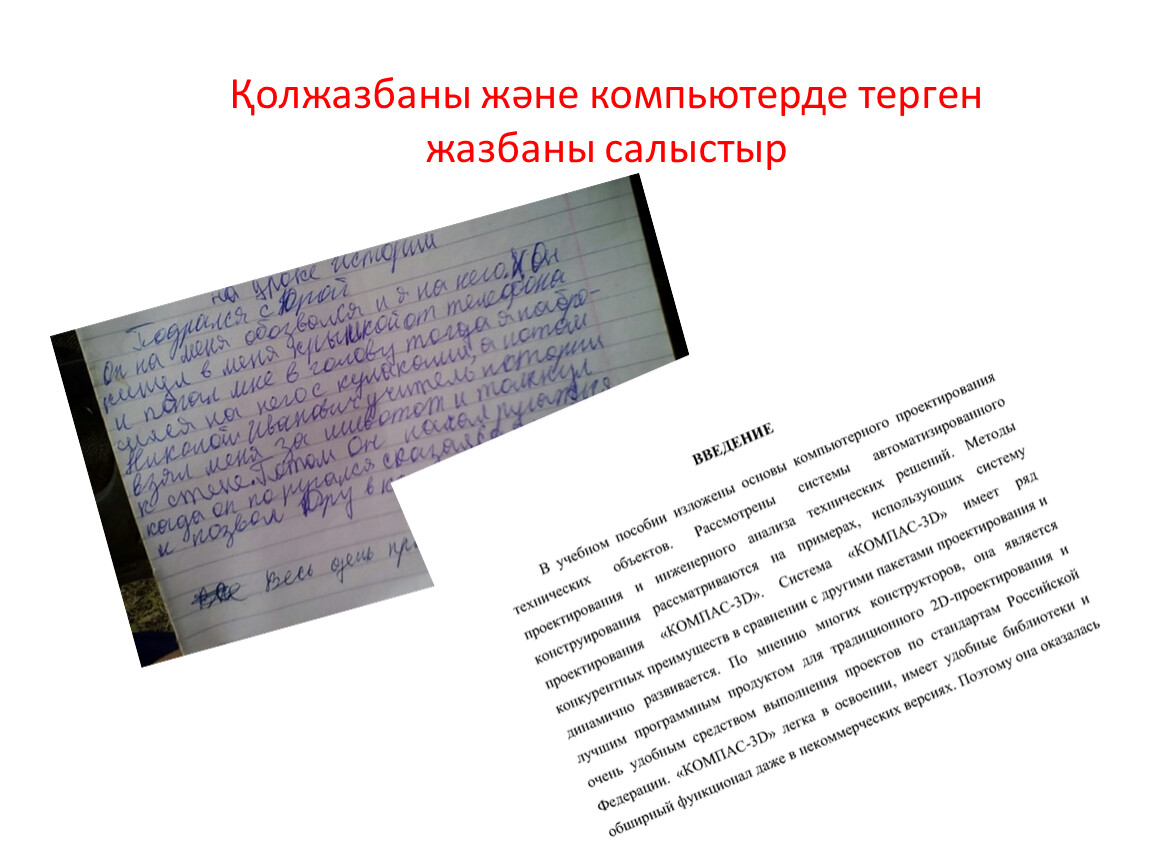 Қолжазбаны және компьютерде терген
жазбаны салыстыр
на уроке истории
Подрался с Юрой
Он на меня обозвался и я на него. Он
кинул в меня крышкой от телефона
и попал мне в голову тогда я набро-
сился на него с кулаками, а потом
Николай Иванович учитель истории
взял меня за живот и толкнул
к стене. Потом он начал ругаться
когда он поругался сказал
и позвал Юру в
Весь день
ВВЕДЕНИЕ
В учебном пособии изложены основы компьютерного проектирования
технических объектов. Рассмотрены системы автоматизированного
проектирования и инженерного анализа технических решений. Методы
конструирования рассматриваются на примерах, использующих систему
проектирования «КОМПАС-3D». Система «КОМПАС-3D» имеет ряд
конкурентных преимуществ в сравнении с другими пакетами проектирования и
динамично развивается. По мнению многих конструкторов, она является
лучшим программным продуктом для традиционного 2D-проектирования и
очень удобным средством выполнения проектов по стандартам Российской
Федерации. «КОМПАС-3D» легка в освоении, имеет удобные библиотеки и
обширный функционал даже в некоммерческих версиях. Поэтому она оказалась